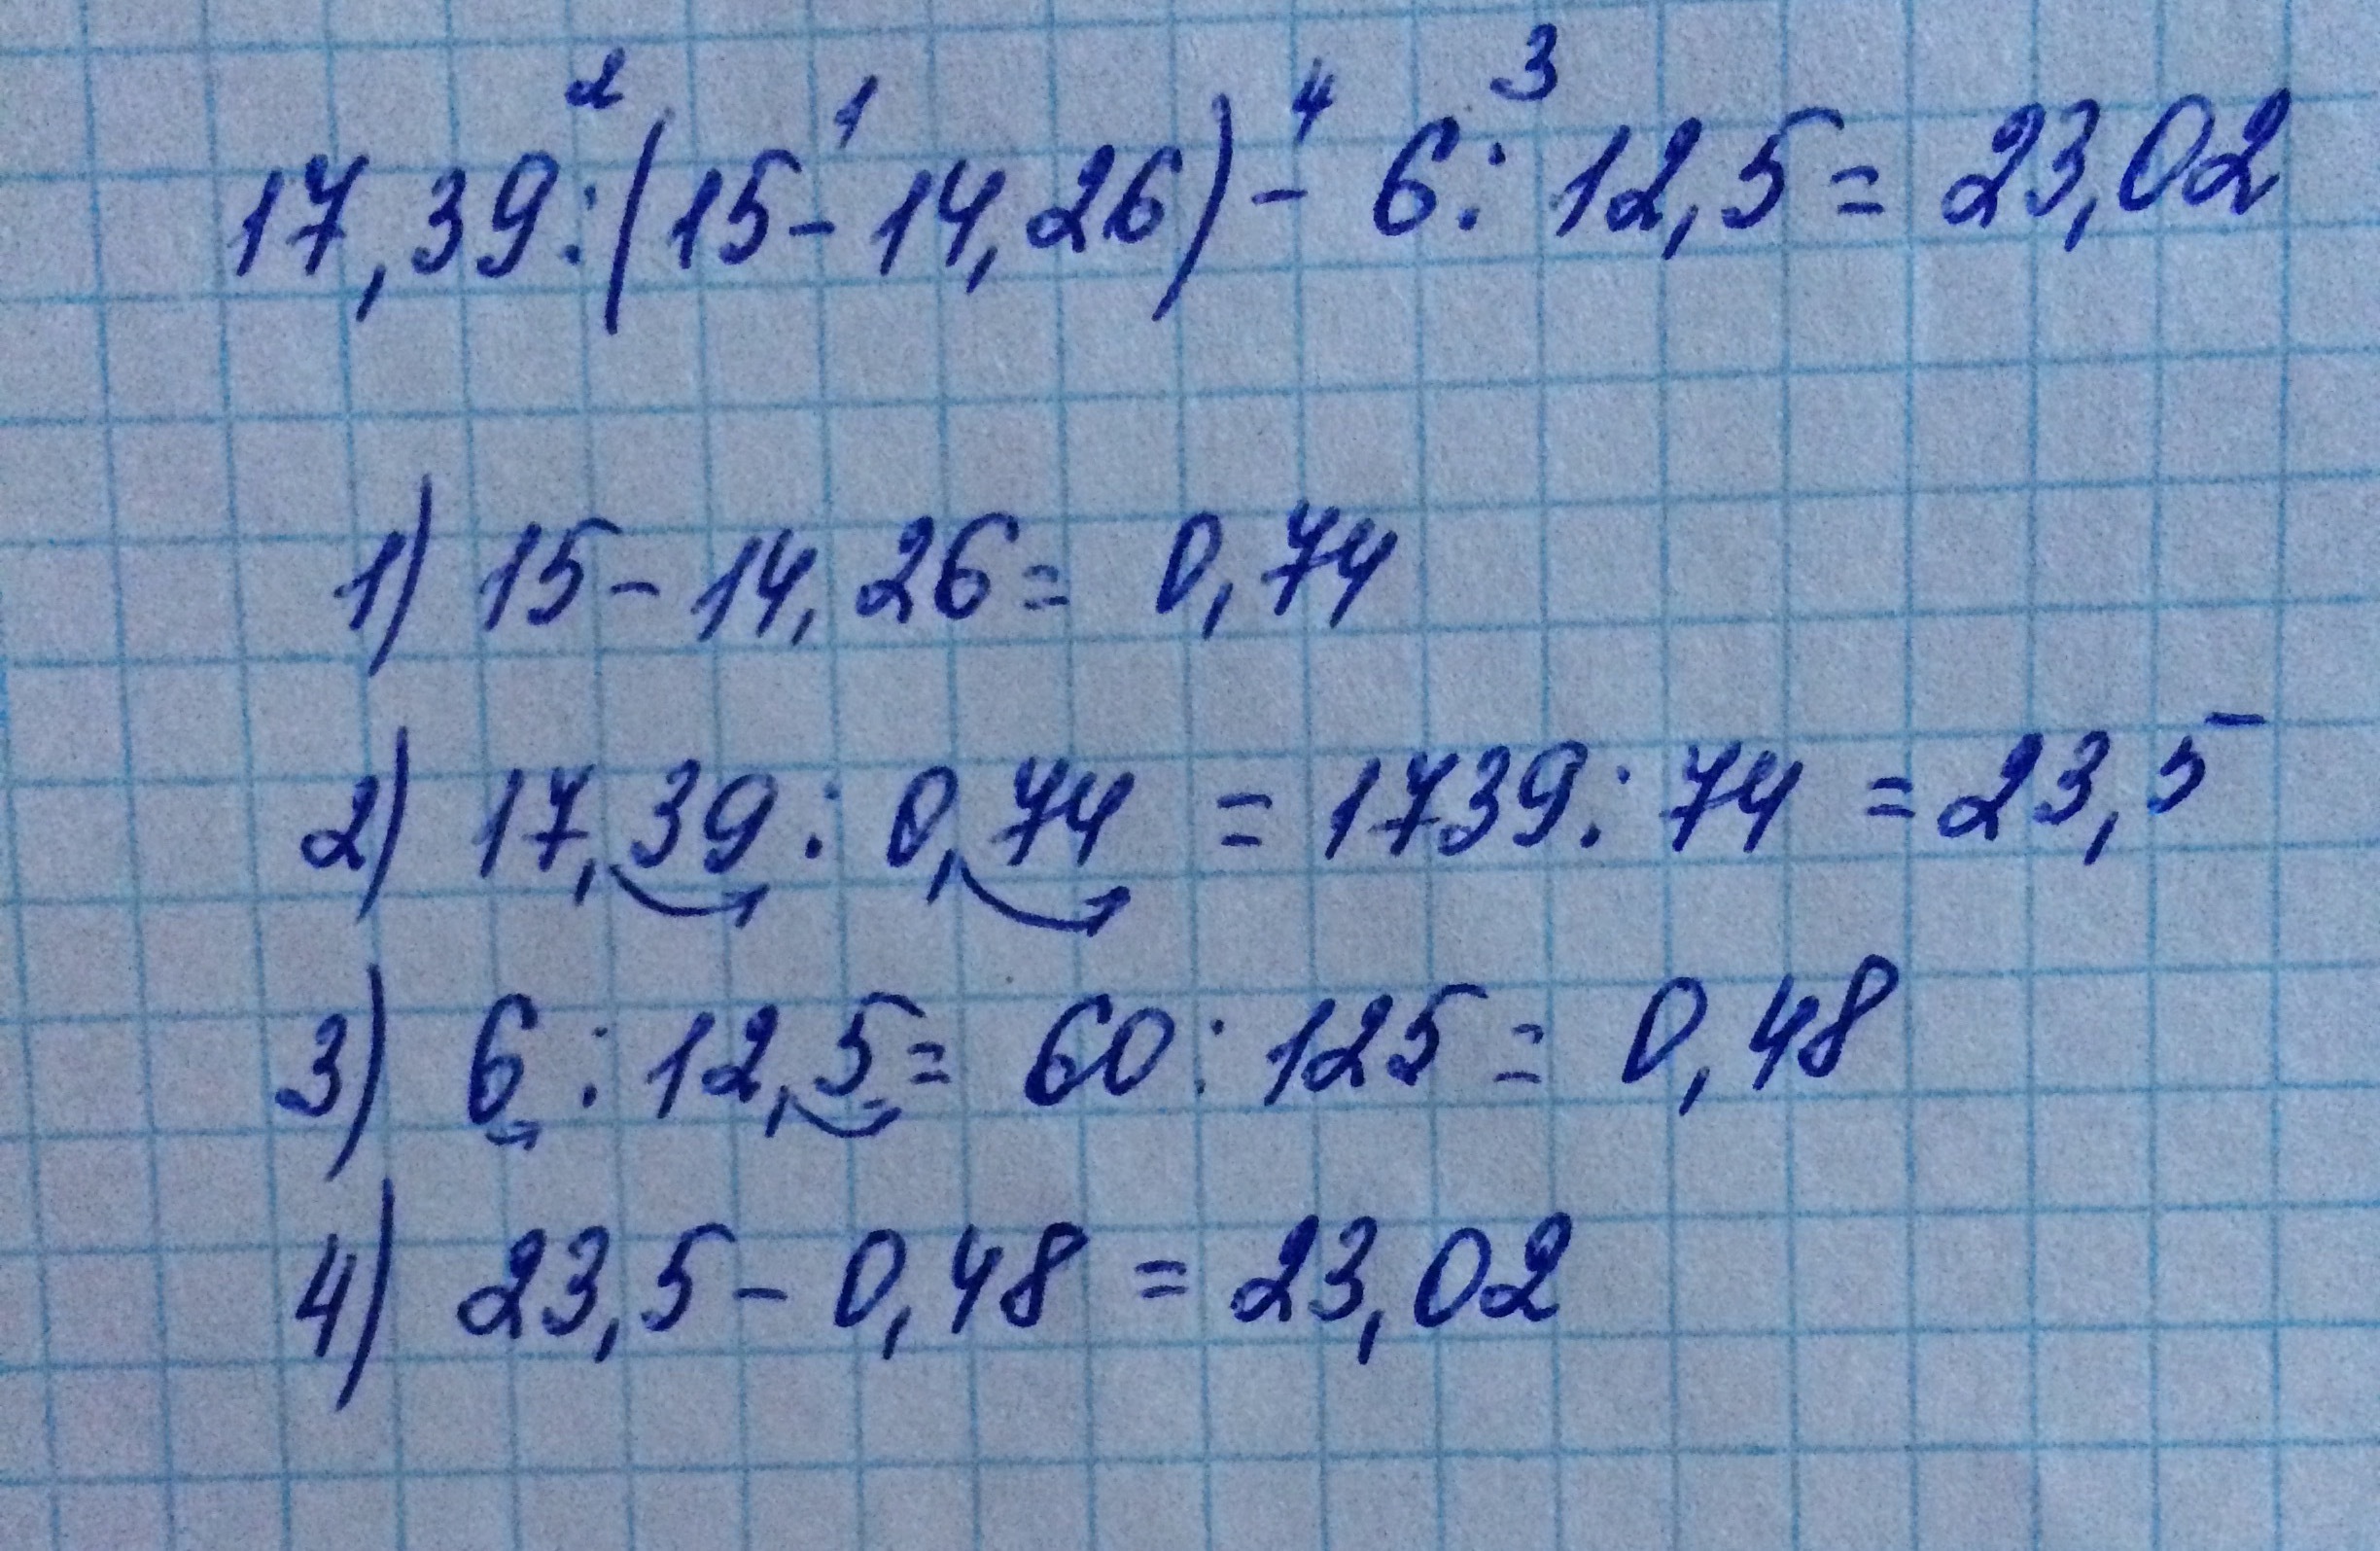 2 1 4 3
17,39:(15-14,26)-6:12,5=23,02
1) 15-14,26=0,74
2) 17,39:0,74=1739:74=23,5
3) 6:12,5=60:125=0,48
4) 23,5-0,48=23,02